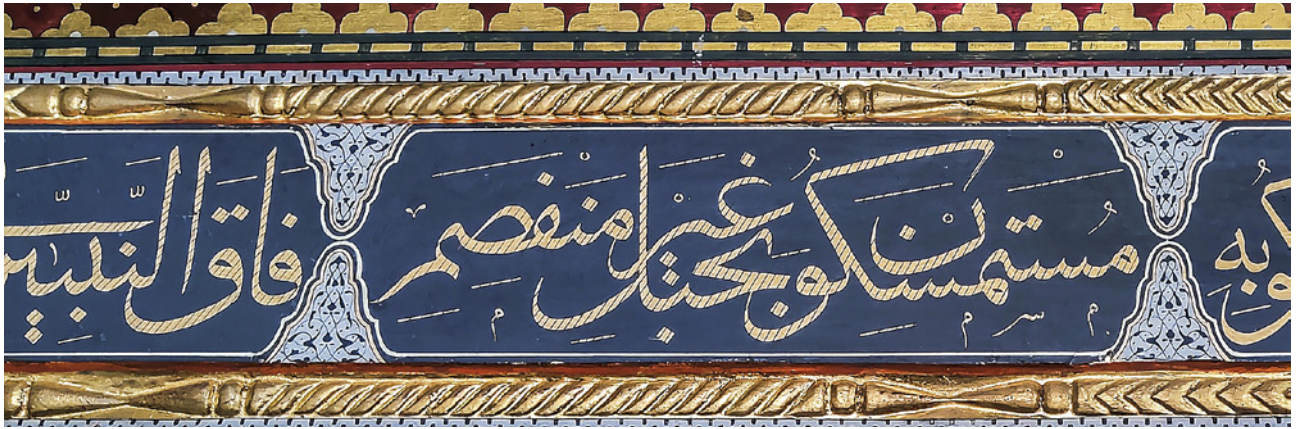 به مستمسكون بحبل غير منفصم فاق النبيين